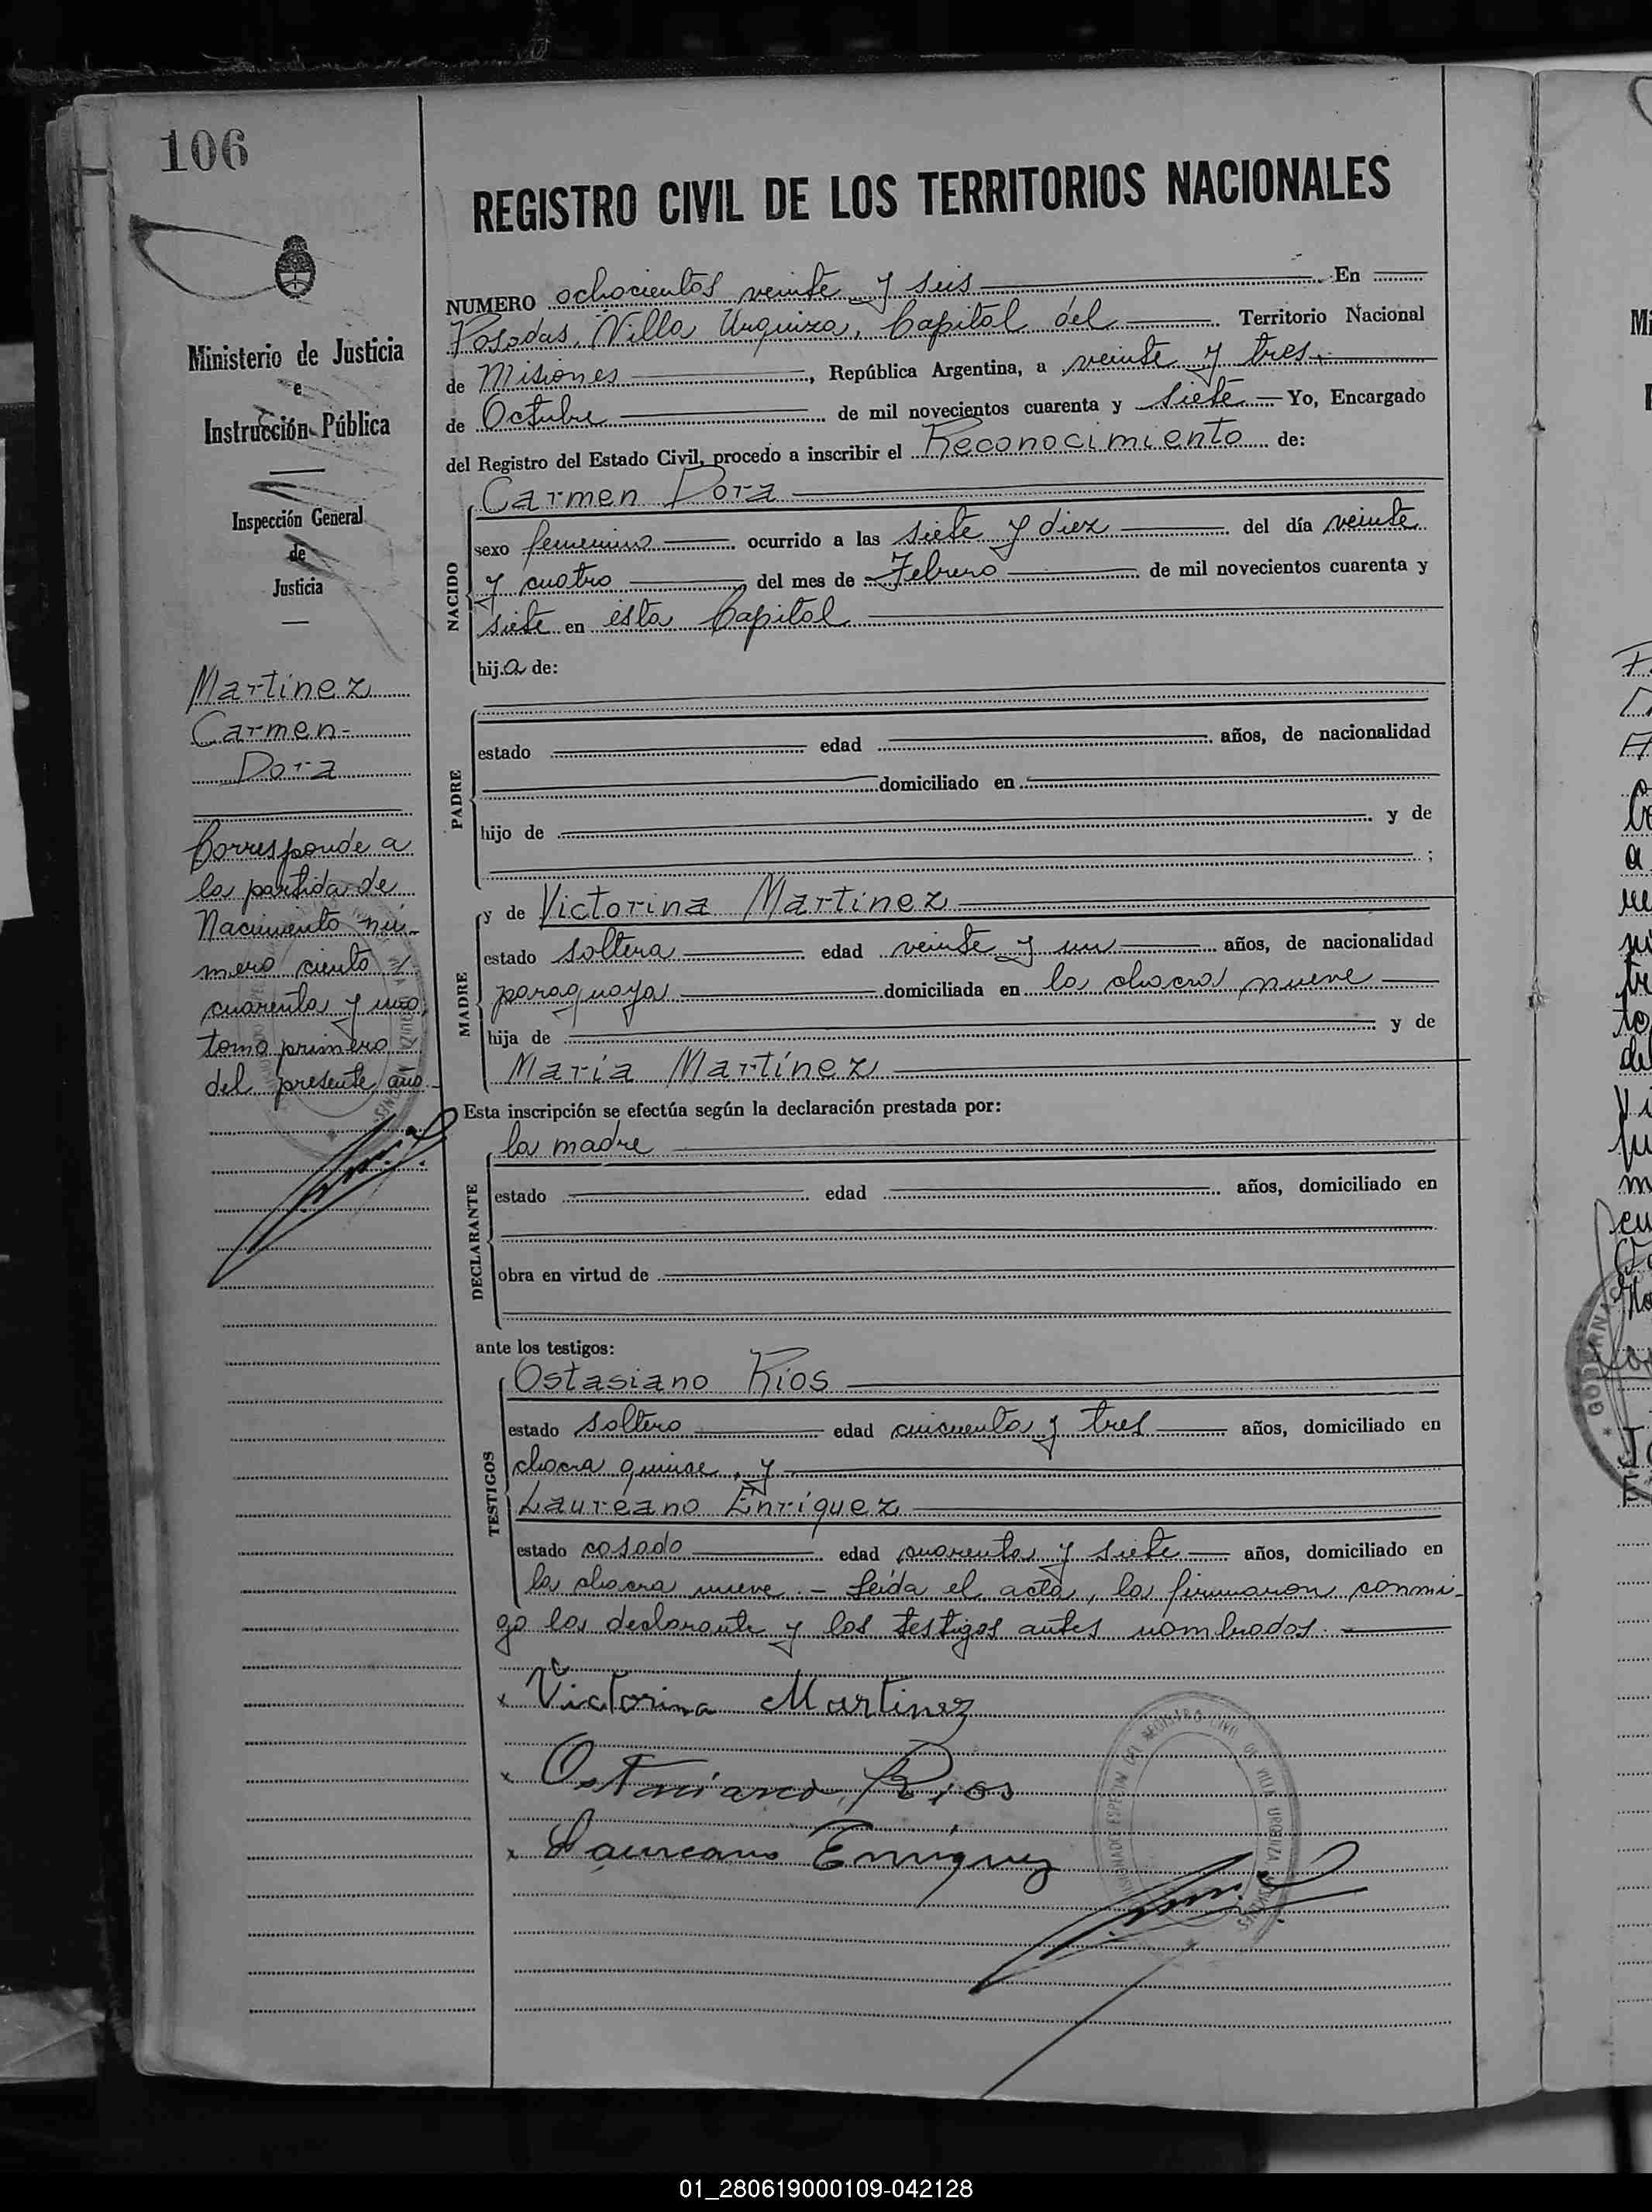 106
REGISTRO CIVIL DE LOS TERRITORIOS NACIONALES
Ministerio de Justicia
e
Instrucción Pública
Inspección General
de
Justicia
Martinez
Carmen-
Dora
Corresponde a
la partida de
Nacimiento nú-
mero ciento y
cuarenta y uno,
tomo primero
del presente año.
NUMERO ochocientos veinte y seis En
Posadas, Villa Urquiza, Capital del Territorio Nacional
de Misiones, República Argentina, a veinte y tres
de Octubre de mil novecientos cuarenta y siete Yo, Encargado
del Registro del Estado Civil, procedo a inscribir el Reconocimiento de:
NACIDO
Carmen Dora
sexo femenino ocurrido a las siete y diez del día veinte
y cuatro del mes de Febrero de mil novecientos cuarenta y
siete en esta Capital
hija de:
PADRE
estado edad años, de nacionalidad
domiciliado en
hijo de y de
;
MADRE
y de Victorina Martinez
estado soltera edad veinte y un años, de nacionalidad
paraguaya domiciliada en la chacra nueve
hija de y de
Maria Martínez
Esta inscripción se efectúa según la declaración prestada por:
DECLARANTE
la madre
estado edad años, domiciliado en
obra en virtud de
ante los testigos:
TESTIGOS
Ostasiano Rios
estado soltero edad cincuenta y tres años, domiciliado en
chacra quince, y
Laureano Enríquez
estado casado edad cuarenta y siete años, domiciliado en
la chacra nueve.- Leída el acta, la firmaron conmi-
go la declarante y los testigos antes nombrados.
x Victorina Martinez
x Ostaciano Rios
x Laureano Enriquez
DEL REGISTRO CIVIL DE VILLA URQUIZA MISIONES
01_280619000109-042128